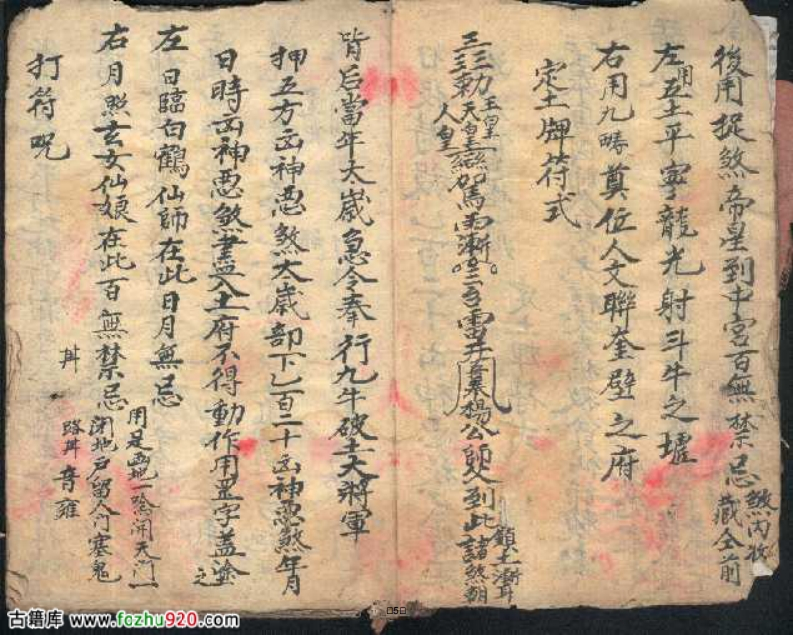 後用捉煞帝星到中宮百無禁忌
煞內收
藏全前
左用五土平寧龍光射斗牛之墟
右用九疇奠位人文聯奎壁之府
定土牌符式
三三勅
玉皇
天皇
人皇
楊公師父到此諸煞朝
背后當年大歲急令奉行九牛破土大將軍
押五方凶神惡煞大歲部下乙百二十凶神惡煞年月
日時凶神惡煞盡入土府不得動作用罡字蓋塗之
左日臨白鶴仙師在此日月無忌
右月照玄女仙娘在此百無禁忌
打符咒
閉地戶留人門塞鬼
路
古籍库 www.fozhu920.com